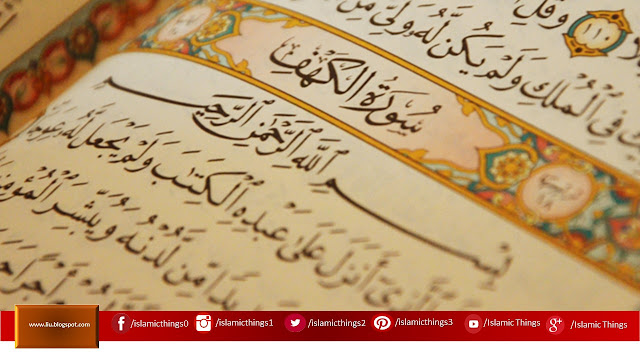 ١١٠ وَقُلِ
فِي الْمُلْكِ وَلَمْ يَكُن لَّهُ وَلِيٌّ مِّنَ
سُورَةُ الْكَهْفِ
بِسْمِ اللَّهِ الرَّحْمَٰنِ الرَّحِيمِ
الَّذِي أَنزَلَ عَلَىٰ عَبْدِهِ الْكِتَٰبَ وَلَمْ يَجْعَل لَّهُ
مِّن لَّدُنْهُ وَيُبَشِّرَ
أَجْرًا
www.liu.blogspot.com /islamicthings0 /islamicthings1 /islamicthings2 /islamicthings3 /Islamic Things /Islamic Things